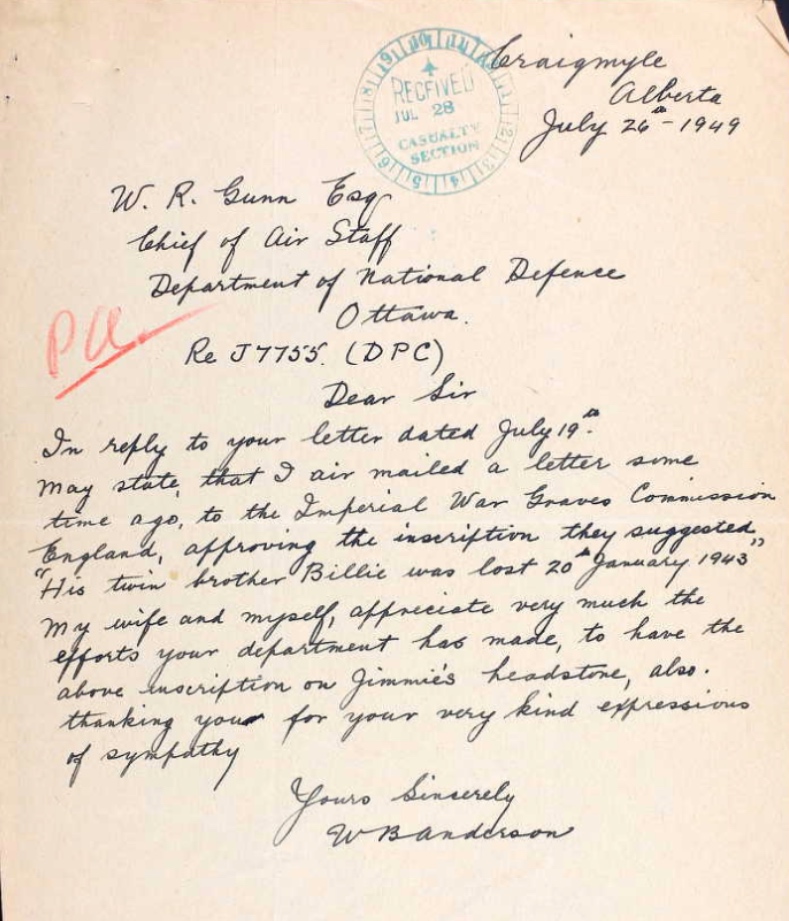 Craigmyle
Alberta
July 26th - 1949
RECEIVED
JUL 28
CASUALTY
SECTION
W. R. Gunn Esq
Chief of Air Staff
Department of National Defence
Ottawa.
P.A.
Re J7755. (DPC)
Dear Sir
In reply to your letter dated July 19th.
May state, that I air mailed a letter some
time ago, to the Imperial War Graves Commission
England, approving the inscription they suggested
"His twin brother Billie was lost 20th January 1943"
My wife and myself, appreciate very much the
efforts your department has made, to have the
above inscription on Jimmie's headstone, also.
thanking you for your very kind expressions
of sympathy
Yours Sincerely
W B Anderson